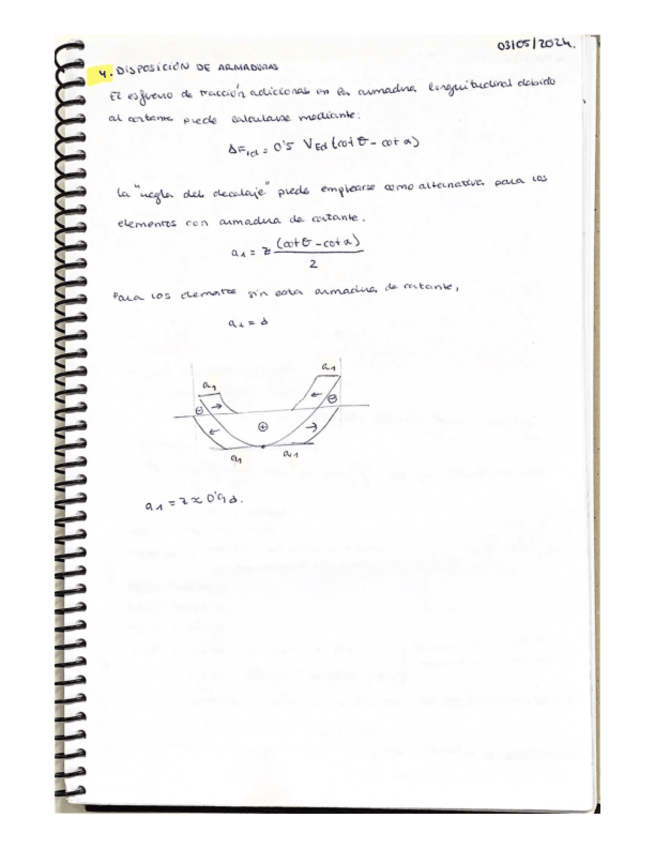 03/05/2024.
4. DISPOSICIÓN DE ARMADURAS
El esfuerzo de tracción adicional en la armadura longitudinal debido
al cortante puede calcularse mediante:
ΔF_td = 0'5 V_Ed (cot θ - cot α)
La "regla del decalaje" puede emplearse como alternativa para los
elementos con armadura de cortante.
a₁ = z (cot θ - cot α) / 2
Para los elementos sin esta armadura de cortante,
a₁ = d
a₁ a₁
⊖ → ← ⊖
← ⊕ →
a₁ a₁
a₁ = z ≈ 0'9d.